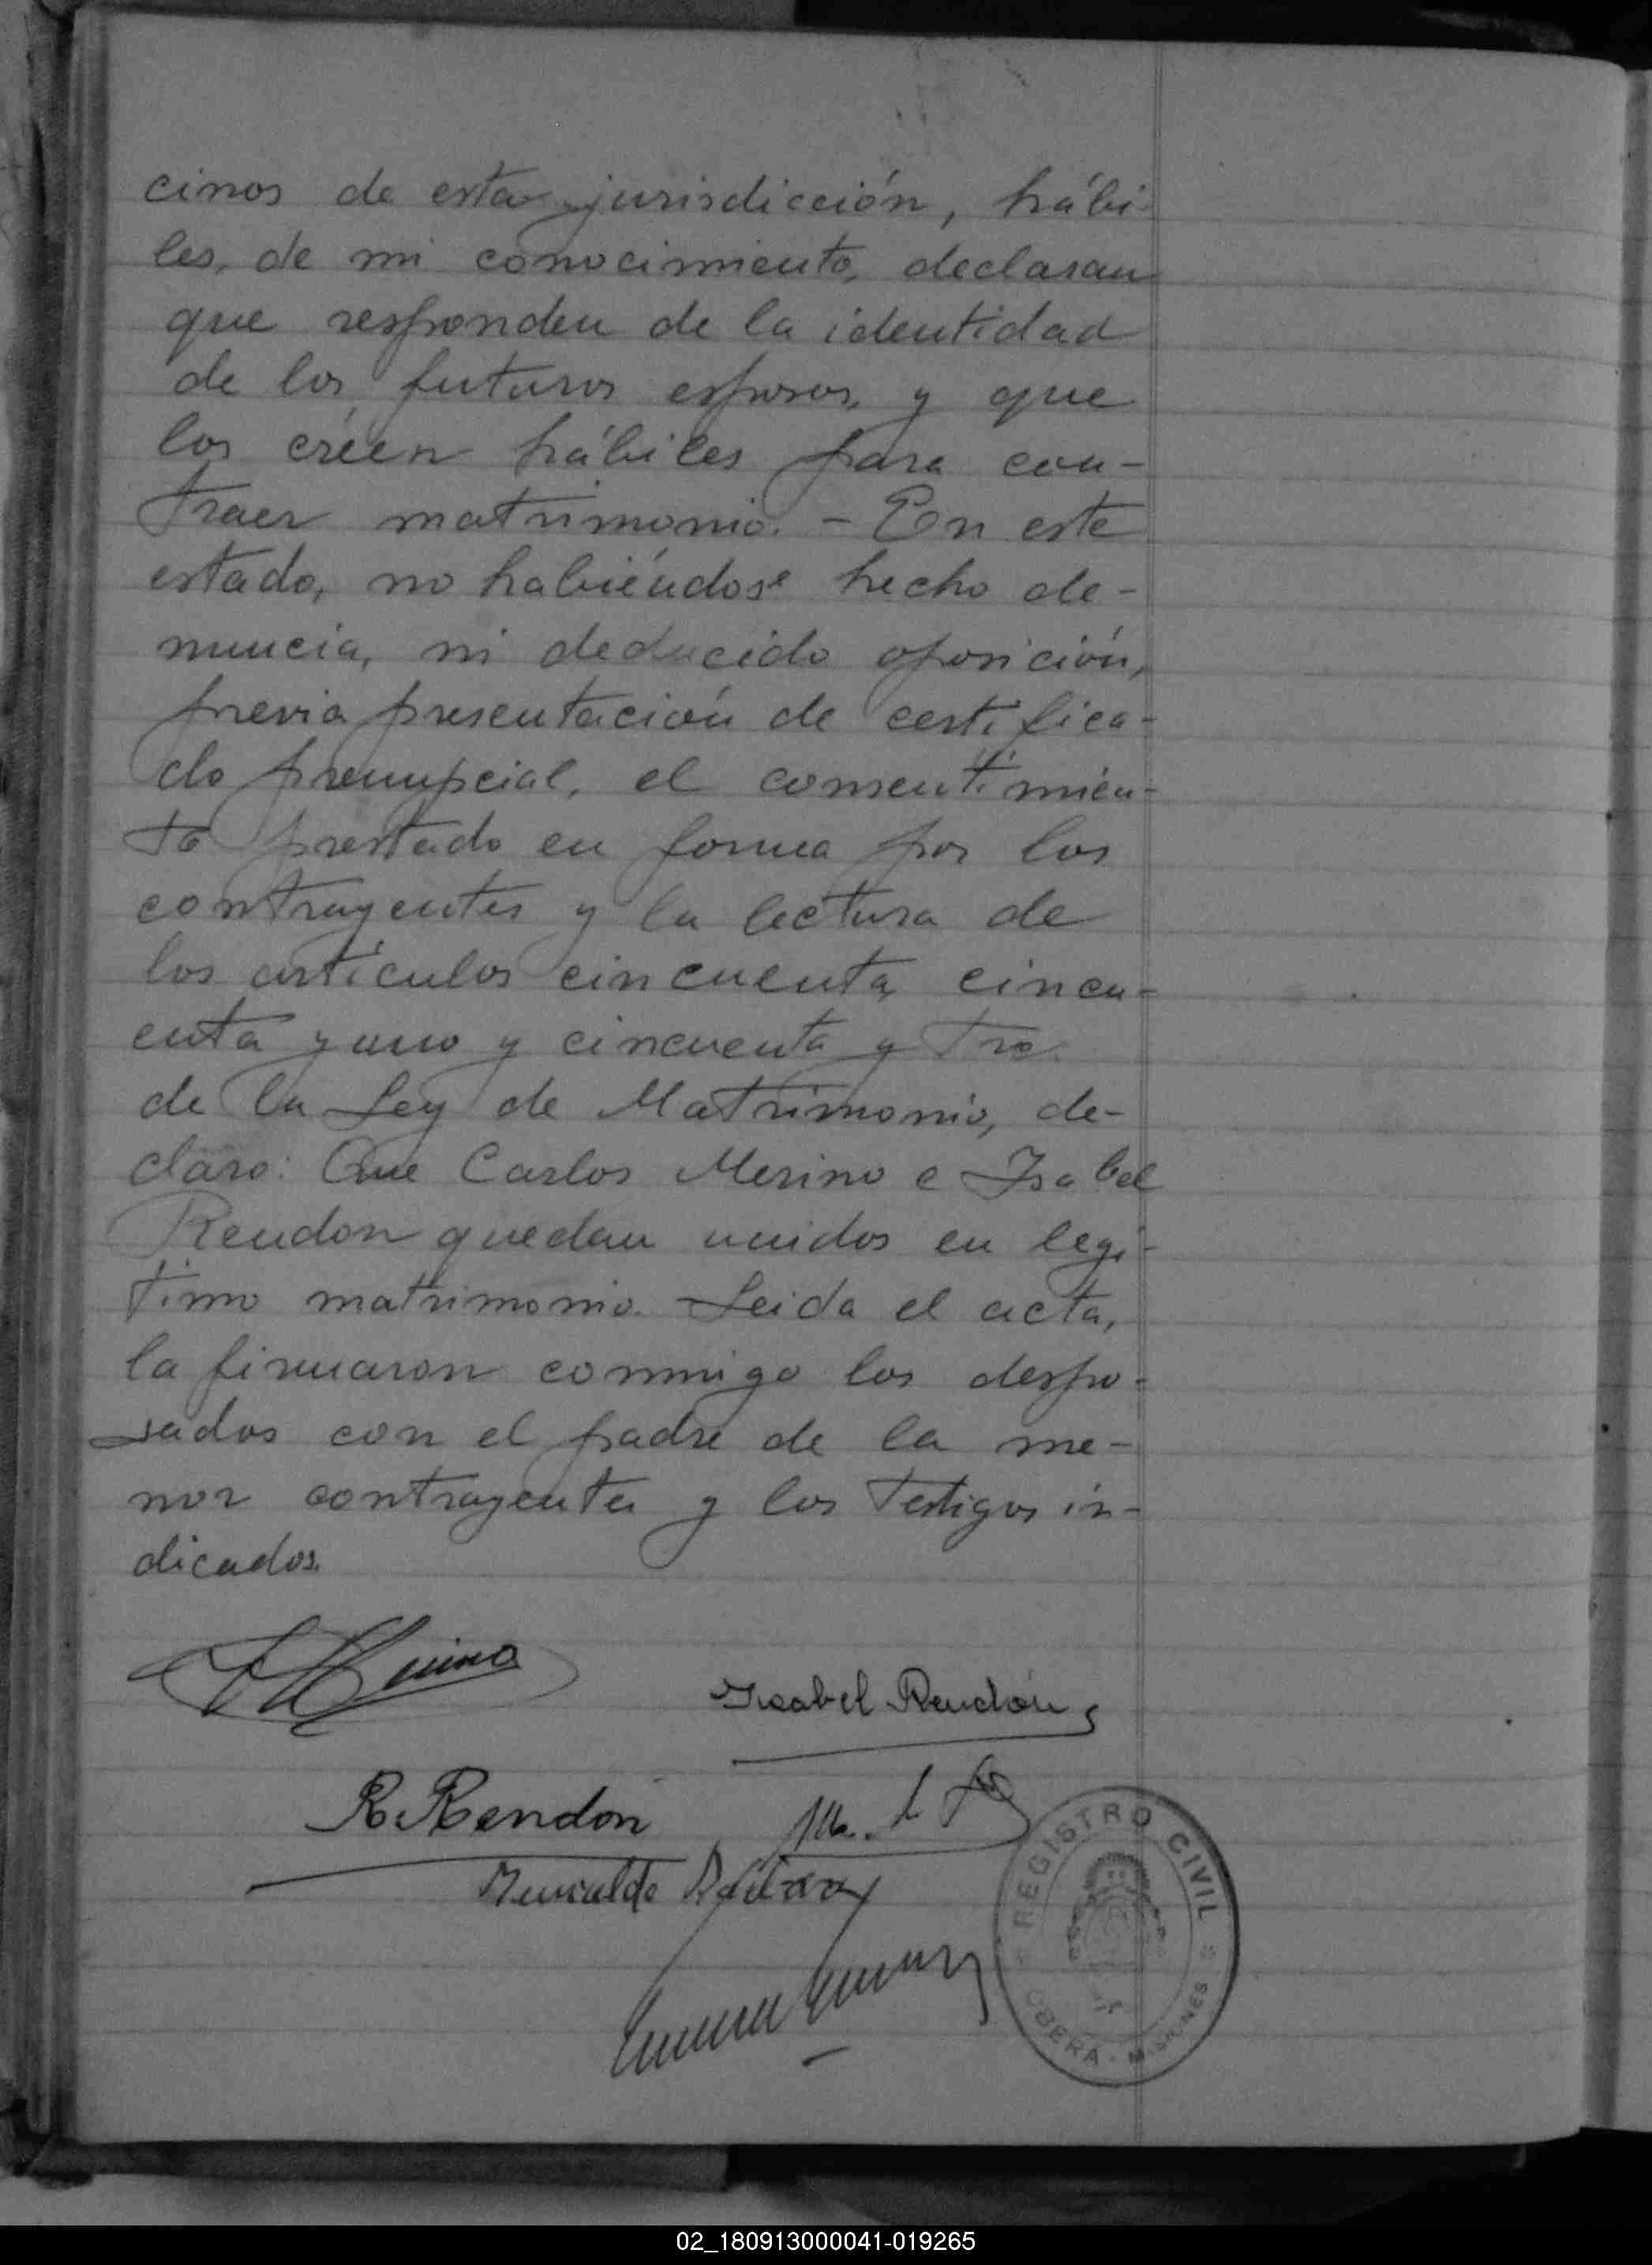 cinos de esta jurisdicción, hábi-
les, de mi conocimiento, declaran
que responden de la identidad
de los futuros esposos, y que
los créen hábiles para con-
traer matrimonio. - En este
estado, no habiéndose hecho de-
nuncia, ni deducido oposición,
previa presentación de certifica-
do prenupcial, el consentimien-
to prestado en forma por los
contrayentes y la lectura de
los artículos cincuenta, cincu-
enta y uno y cincuenta y tres
de la Ley de Matrimonio, de-
claro: Que Carlos Merino e Isabel
Rendon quedan unidos en legi-
timo matrimonio. Leida el acta,
la firmaron conmigo los despo-
sados con el padre de la me-
nor contrayente y los testigos in-
dicados.
Isabel Rendón
R. Rendon
REGISTRO CIVIL
OBERA - MISIONES
02_180913000041-019265